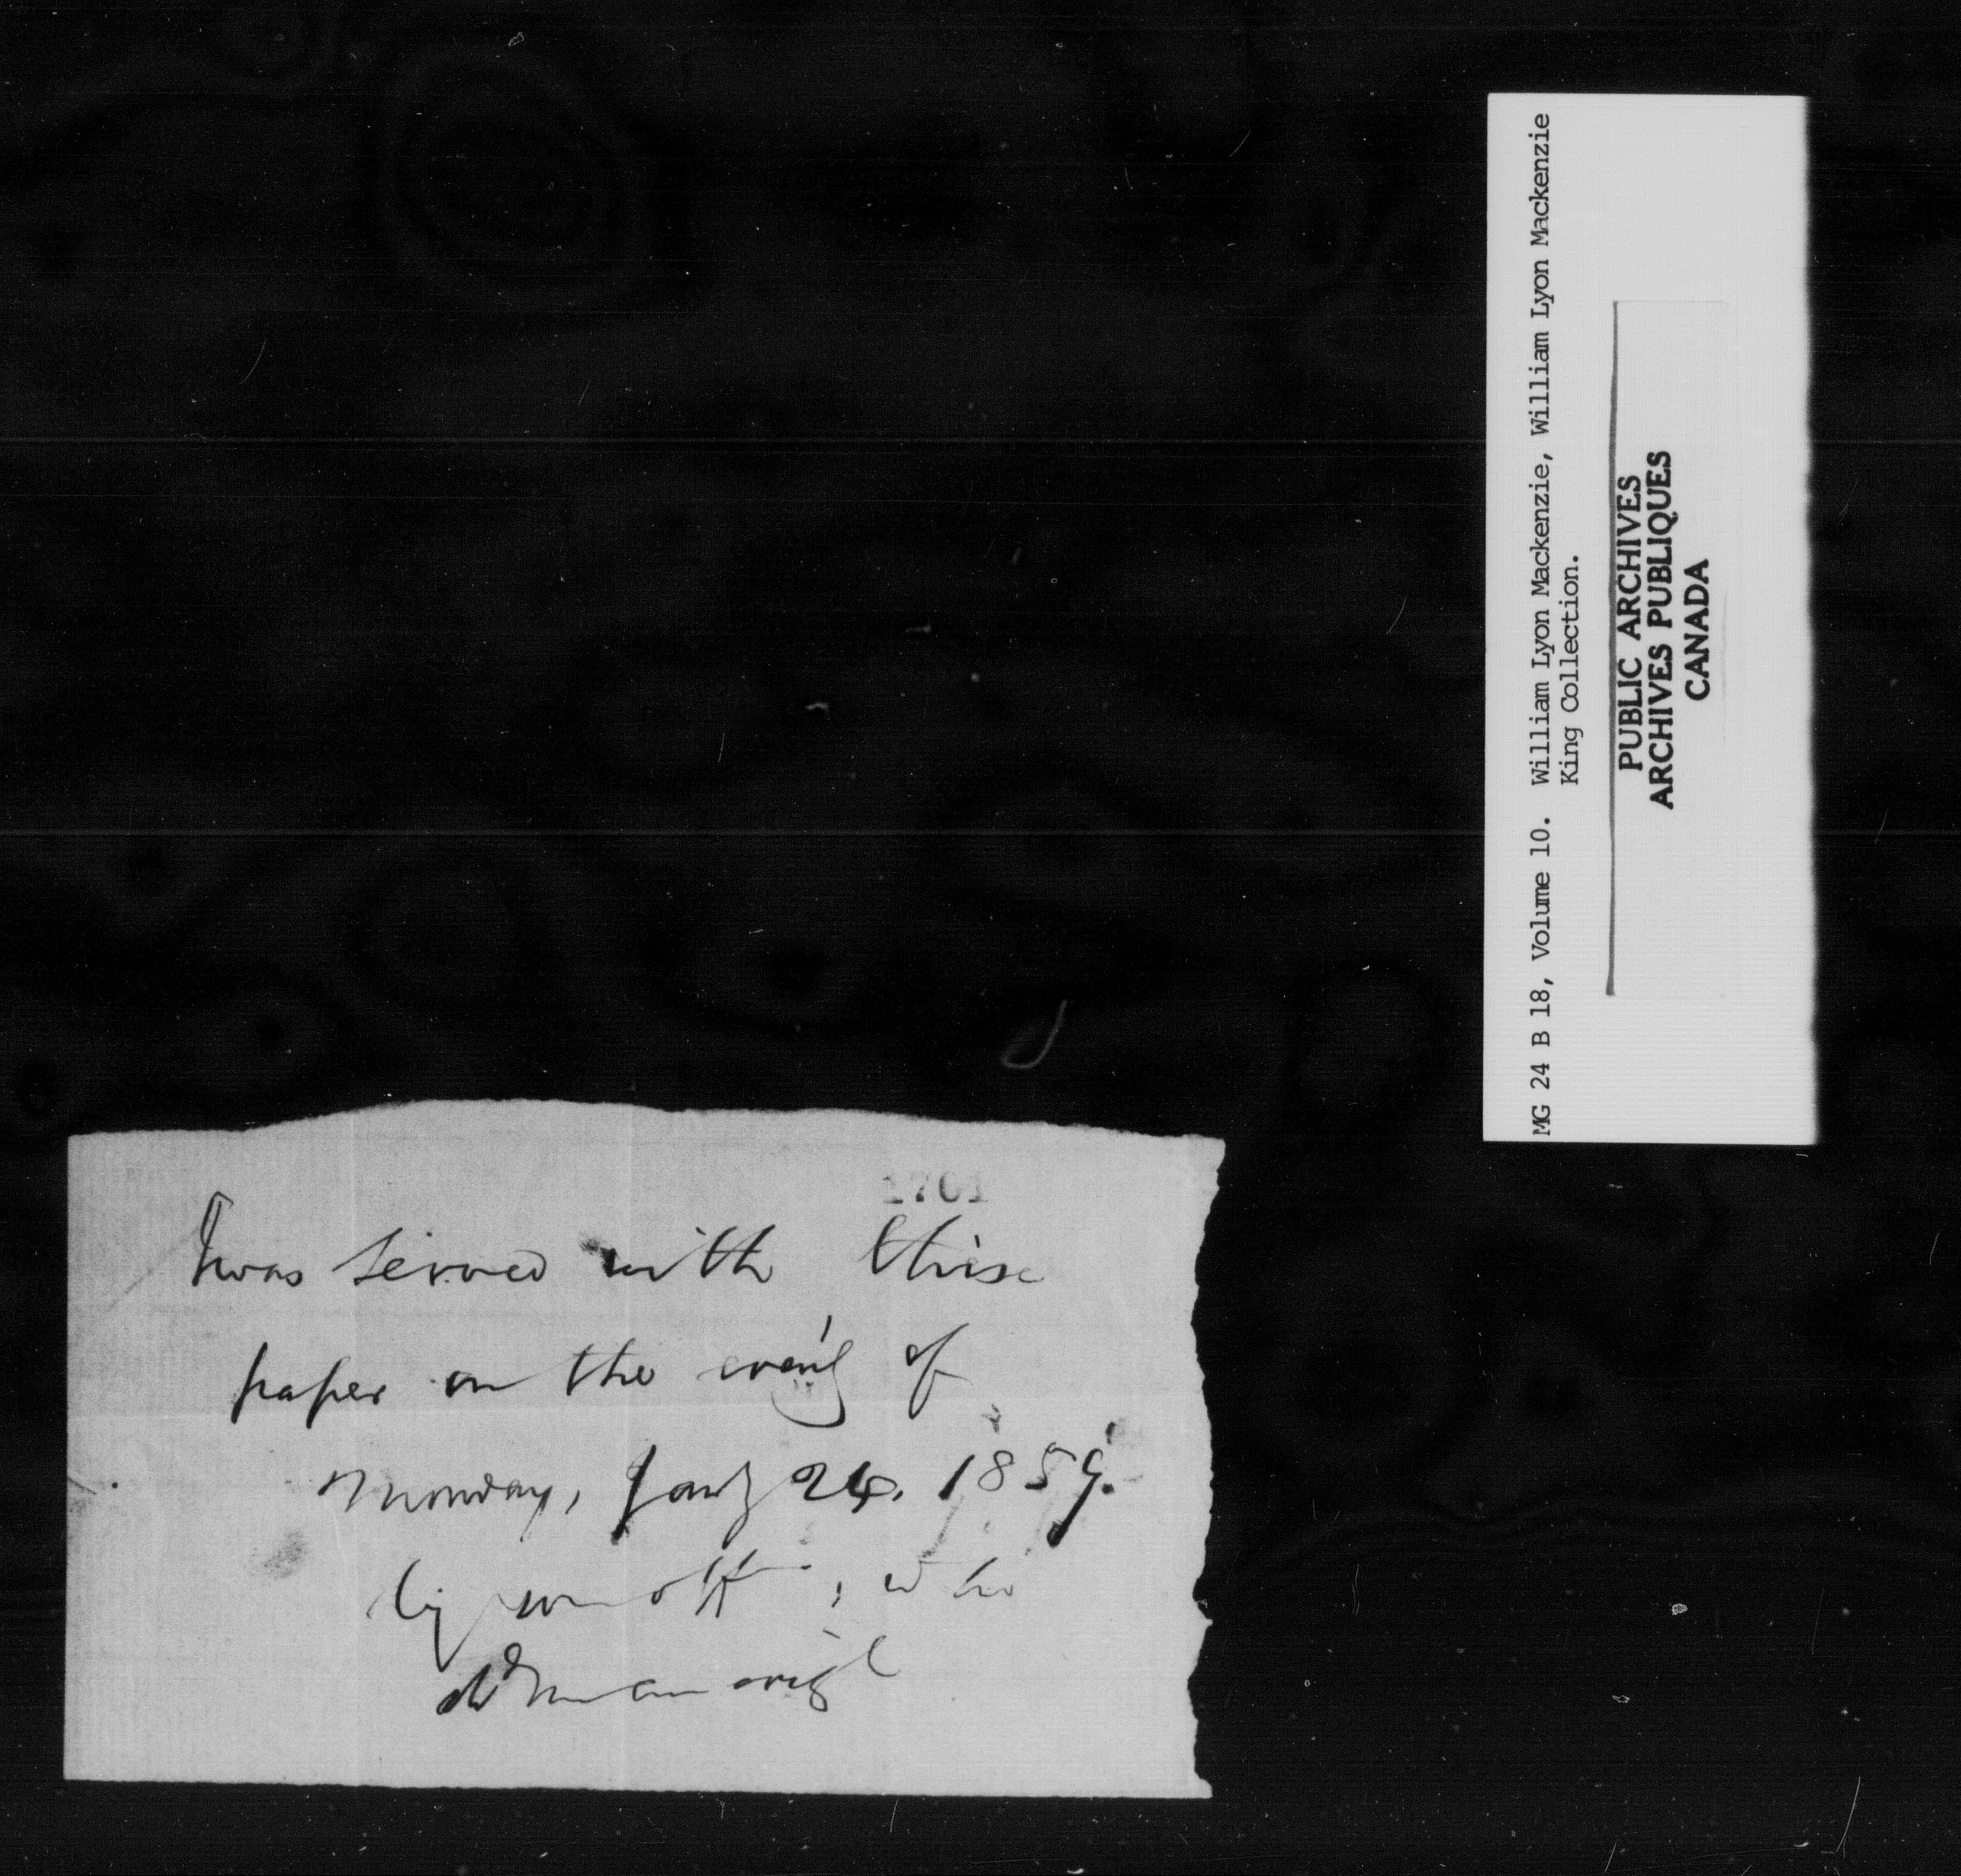 1701
I was served with this
paper on the even'g of
Monday, Jany 24. 1859.
by
MG 24 B 18, Volume 10. William Lyon Mackenzie, William Lyon Mackenzie
King Collection.
PUBLIC ARCHIVES
ARCHIVES PUBLIQUES
CANADA